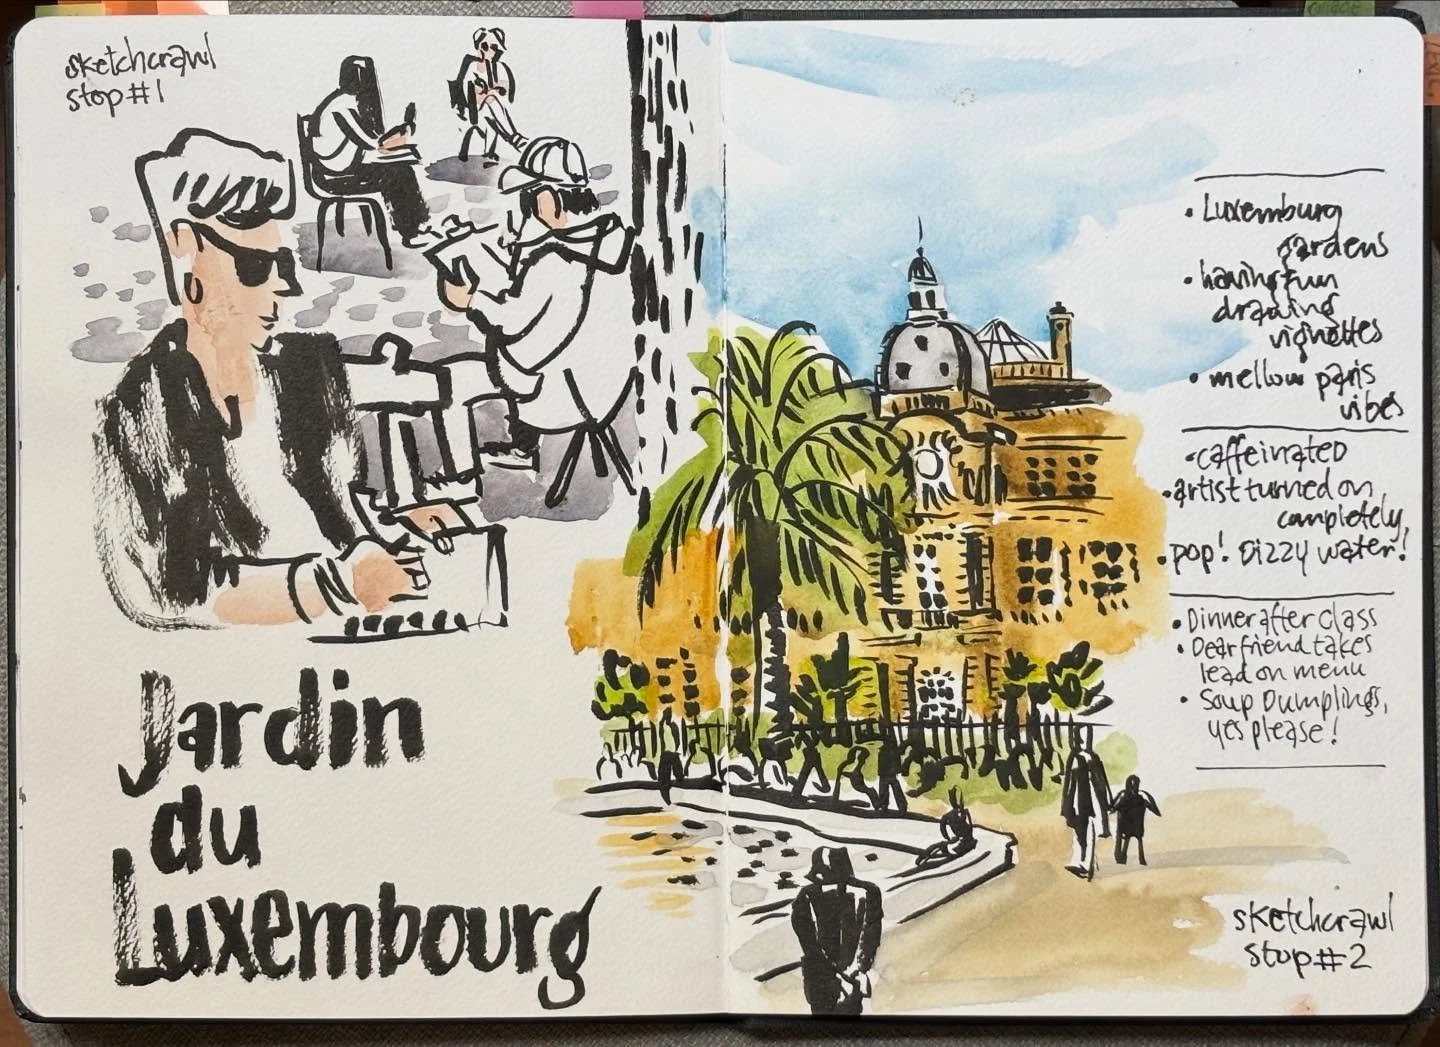 sketchcrawl
stop #1
Jardin
du
Luxembourg
• Luxemburg
gardens
• having fun
drawing
vignettes
• mellow paris
vibes
• caffeinated
• artist turned on
completely,
• pop! Dizzy water!
• Dinner after class
• Dear friend takes
lead on menu
• Soup Dumplings,
yes please!
sketchcrawl
stop #2